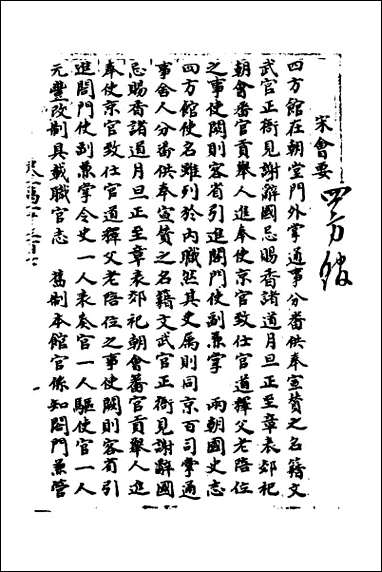 宋會要
四方館
四方館在朝堂門外掌通事分番供奉宣贊之名籍文
武官正衙見謝辭國忌賜香諸道月旦正至章表郊祀
朝會番官貢舉人進奉使京官致仕官道釋父老陪位
之事使闕則客省引進閤門使副兼掌　兩朝國史志
四方館使名雖列於內職然其吏屬則同京百司掌通
事舍人分番供奉宣贊之名籍文武官正衙見謝辭國
忌賜香諸道月旦正至章表郊祀朝會蕃官貢舉人進
奉使京官致仕官道釋父老陪位之事使闕則客省引
進閤門使副兼掌令史一人表奏官一人驅使官一人
元豐改制具載職官志　舊制本館官係知閤門兼管